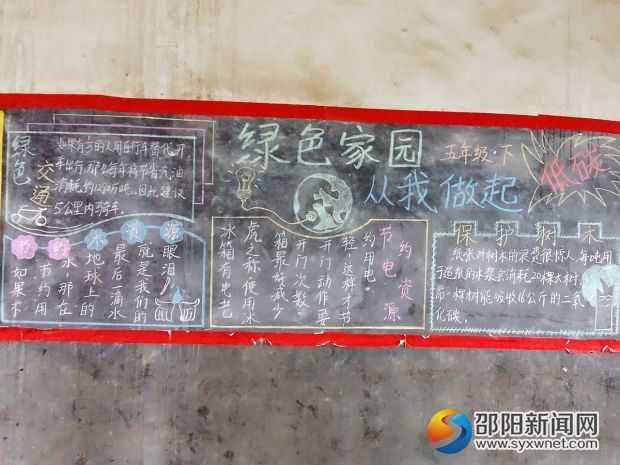 绿色家园
五年级·下
从我做起
低碳
绿色交通
如果有⅓的人用自行车替代开
车出行,那么每年将节省汽油
消耗约1280万吨。因此建议
5公里内骑车。
节约水资源
如果不
节约用
水,那在
地球上的
最后一滴水
就是我们的
眼泪!
节约电资源
冰箱有电老
虎之称,使用冰
箱最好减少
开门次数,
开门动作要
轻,这样才节
约用电
保护树木
纸张对树木的浪费很惊人,每吨用
造纸的木浆会消耗20棵大树,
而一棵树能吸收16公斤的二氧
化碳。
邵阳新闻网
www.syxwnet.com